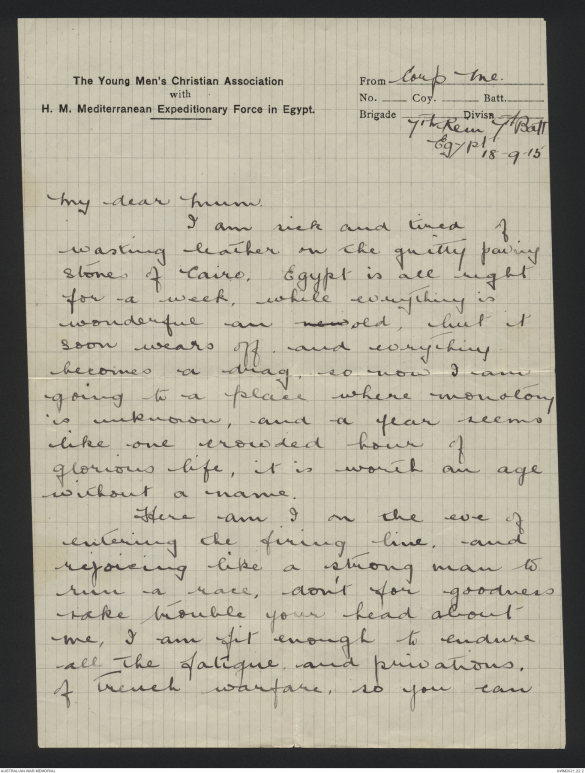 The Young Men's Christian Association
with
H. M. Mediterranean Expeditionary Force in Egypt.
From Corp me.
No. Coy. Batt.
Brigade Divisn
7th Rein 7th Batt
Egypt
18-9-15
My dear Mum
I am sick and tired of
wasting leather on the gritty paving
stones of Cairo. Egypt is all right
for a week, while everything is
wonderful an new old, but it
soon wears off and everything
becomes a drag, so now I am
going to a place where monotony
is unknown, and a year seems
like one crowded hour of
glorious life, it is worth an age
without a name.
Here am I on the eve of
entering the firing line, and
rejoicing like a strong man to
run a race, don't for goodness
sake trouble your head about
me, I am fit enough to endure
all the fatigue and privations,
of trench warfare, so you can
AUSTRALIAN WAR MEMORIAL